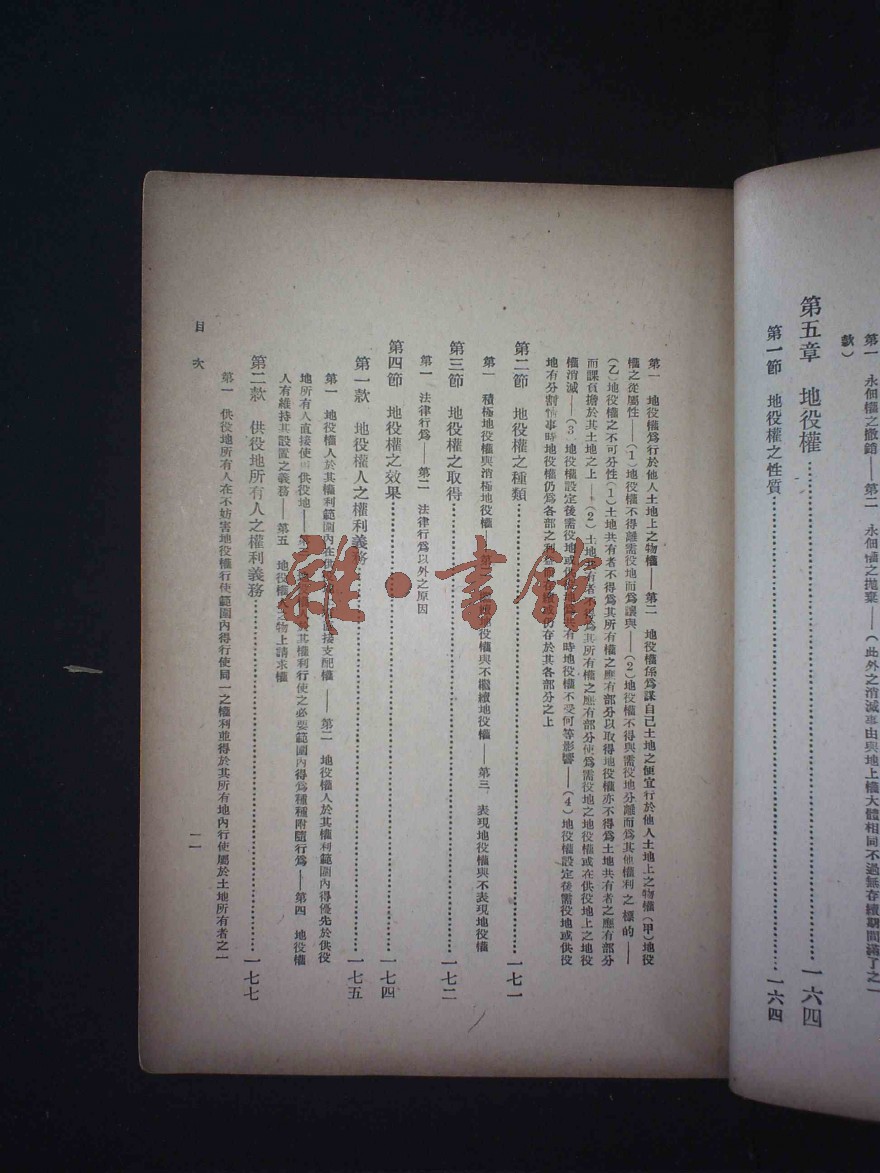 第一　永佃權之撤銷——第二　永佃權之拋棄——（此外之消滅事由與地上權大體相同不過無存續期間滿了之一
款）
第五章　地役權……一六四
第一節　地役權之性質……一六四
第一　地役權爲行於他人土地上之物權——第二　地役權係爲謀自己土地之便宜行於他人土地上之物權（甲）地役
權之從屬性——（1）地役權不得離需役地而爲讓與——（2）地役權不得與需役地分離而爲其他權利之標的——
（乙）地役權之不可分性（1）土地共有者不得爲其所有權之應有部分以取得地役權亦不得爲土地共有者之應有部分
而課負擔於其土地之上——（2）土地共有者不得爲其所有權之應有部分使爲需役地之地役權或在供役地上之地役
權消滅——（3）地役權設定後需役地或供役地爲共有時地役權不受何等影響——（4）地役權設定後需役地或供役
地有分割情事時地役權仍爲各部之利益 仍存於其各部分之上
第二節　地役權之種類……一七一
第一　積極地役權與消極地役權——第二　繼續地役權與不繼續地役權——第三　表現地役權與不表現地役權
第三節　地役權之取得……一七二
第一　法律行爲——第二　法律行爲以外之原因
第四節　地役權之效果……一七四
第一款　地役權人之權利義務……一七五
第一　地役權人於其權利範圍內在供 接支配權——第二　地役權人於其權利範圍內得優先於供役
地所有人直接使用供役地——第三　地役權 其權利行使之必要範圍內得爲種種附隨行爲——第四　地役權
人有維持其設置之義務——第五　地役權 之物上請求權
第二款　供役地所有人之權利義務……一七七
第一　供役地所有人在不妨害地役權行使範圍內得行使同一之權利並得於其所有地內行使屬於土地所有者之一
目次
一一
雜·書館